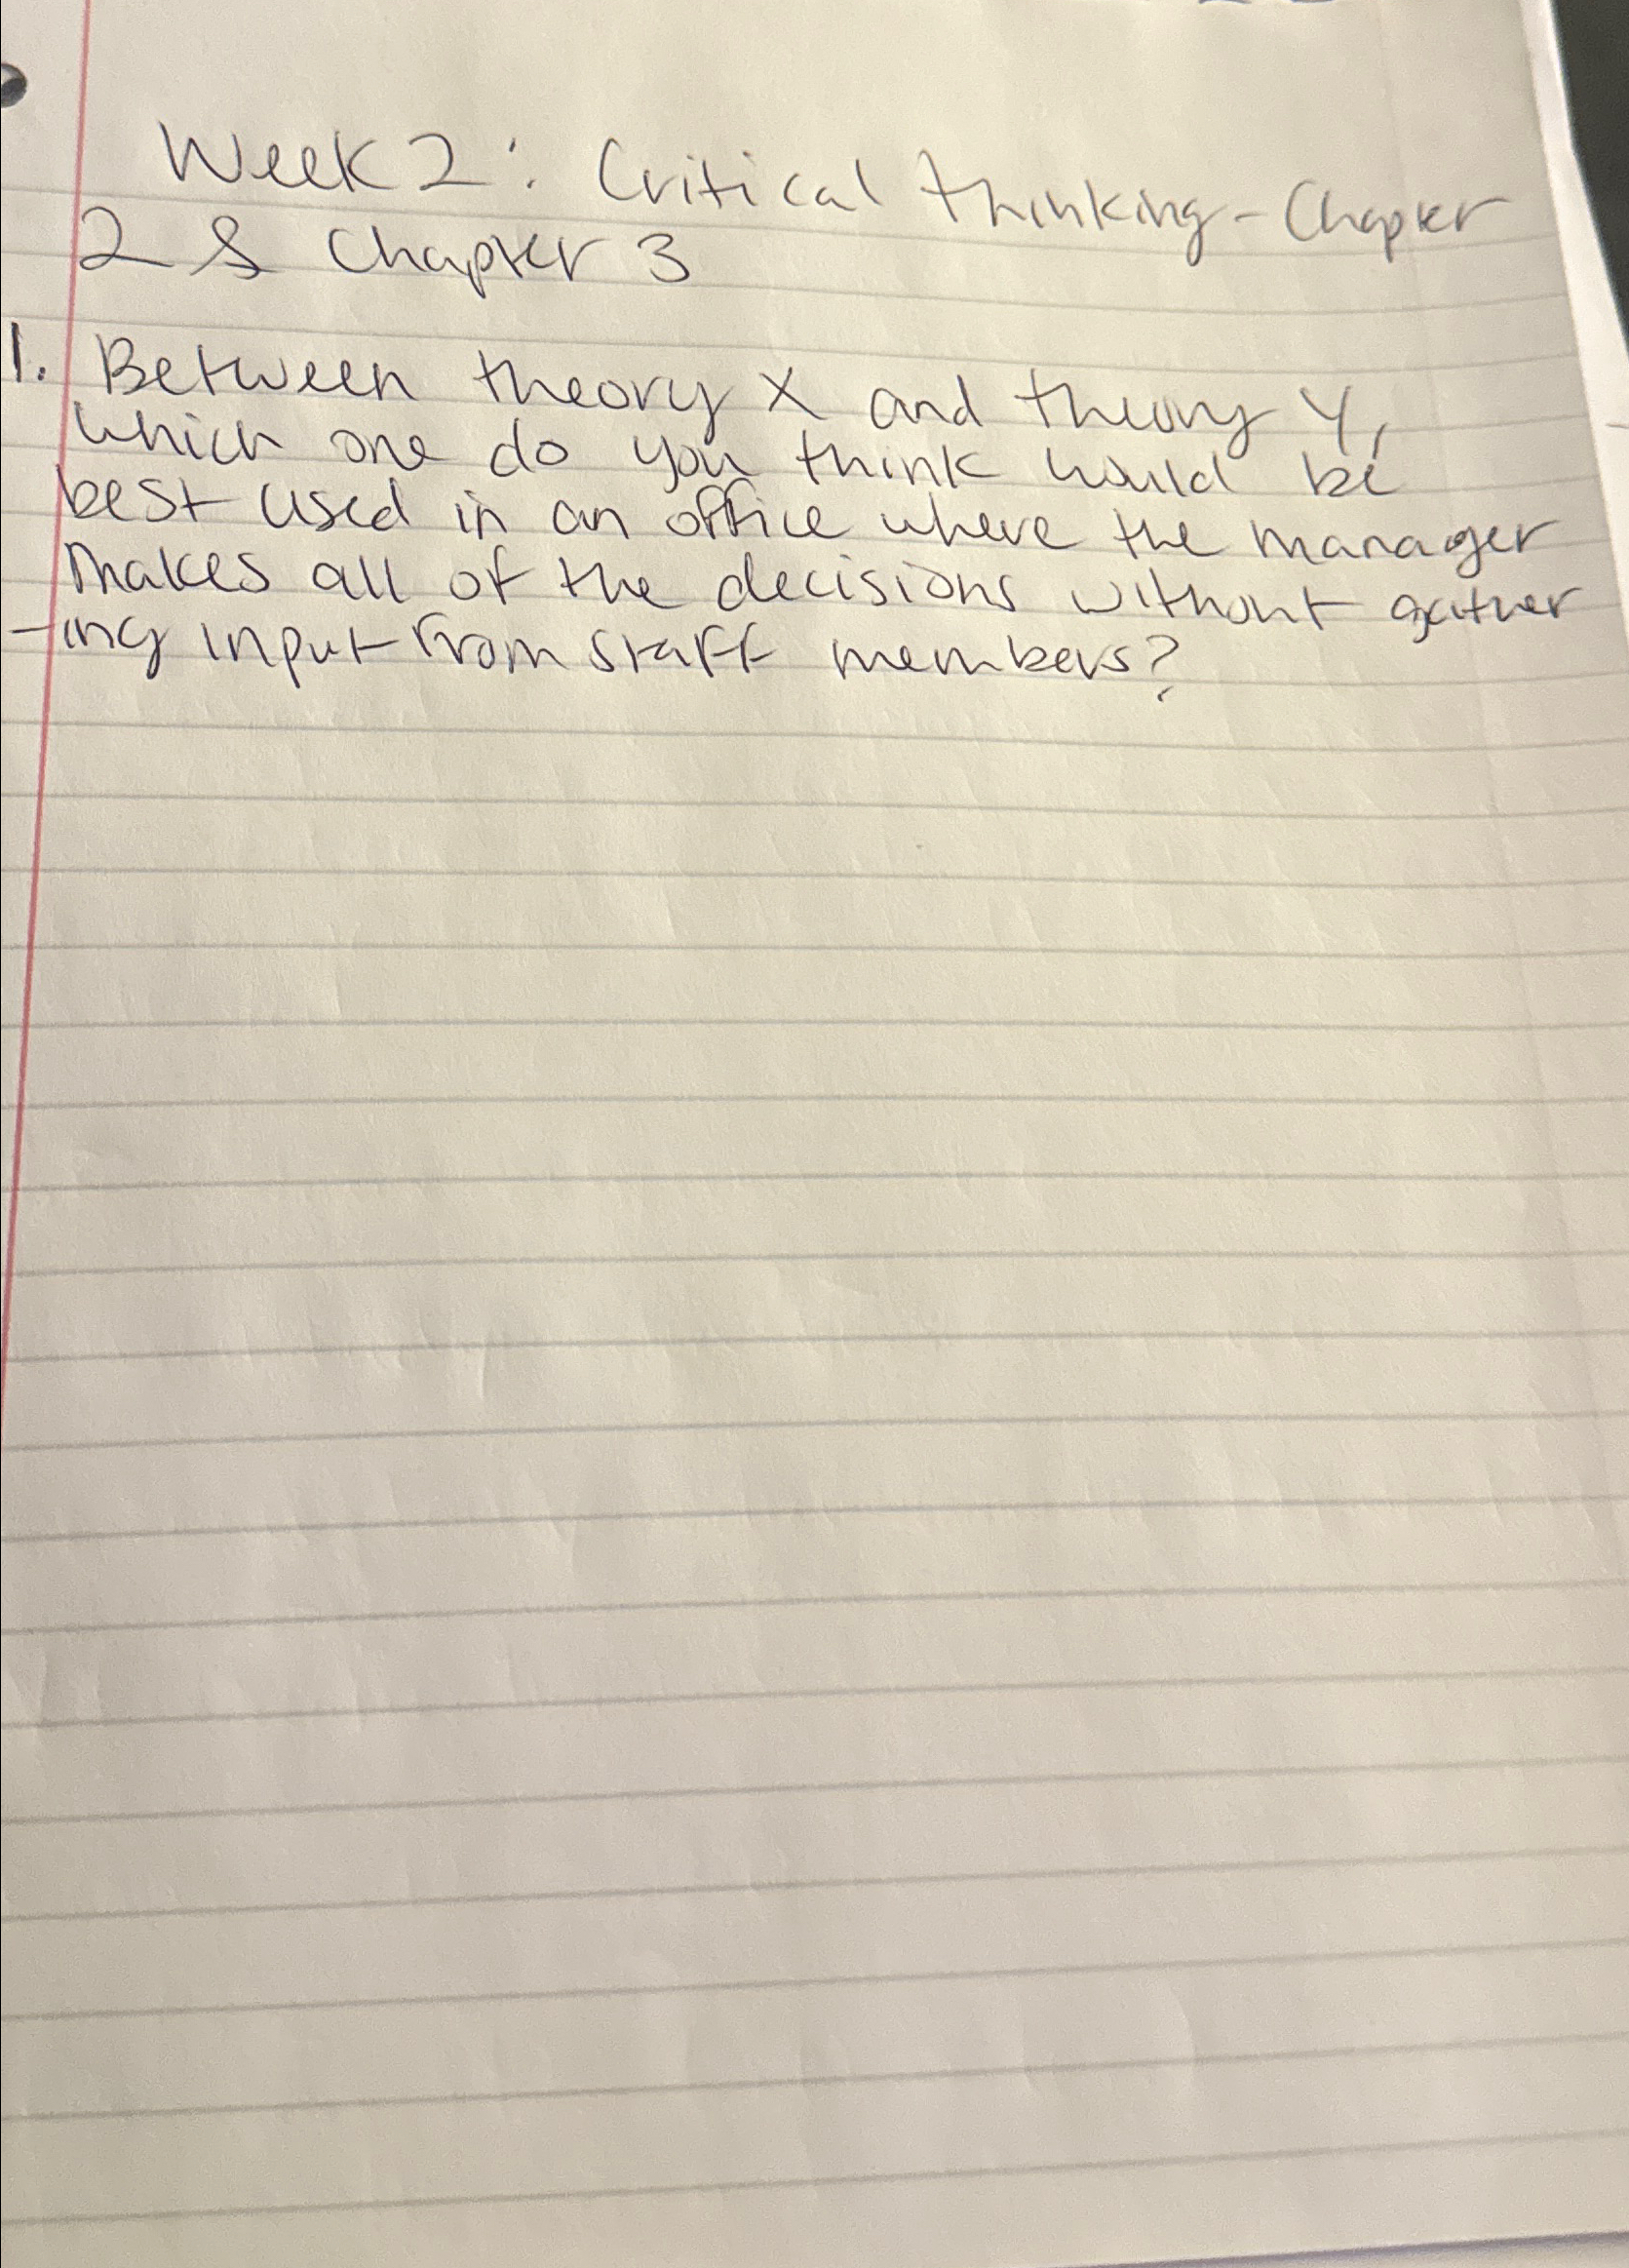 Week 2: Critical thinking - Chapter
2 & Chapter 3
1. Between theory X and theory Y,
which one do you think would be
best used in an office where the manager
makes all of the decisions without gather
-ing input from staff members?